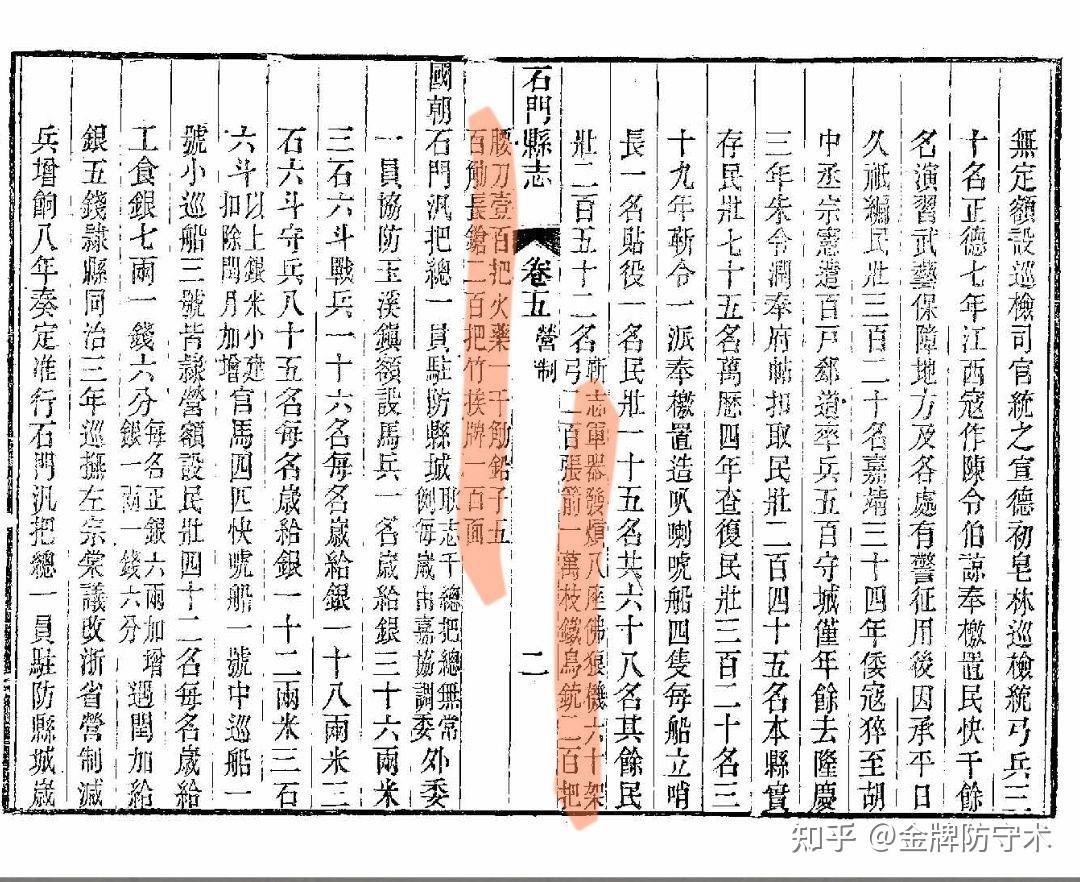 無定額設巡檢司官統之宣德初皂林巡檢統弓兵三
十名正德七年江西寇作陳令伯諒奉檄置民快千餘
名演習武藝保障地方及各處有警征用後因承平日
久祗編民壯三百二十名嘉靖三十四年倭寇猝至胡
中丞宗憲遣百戸鄒道率兵五百守城僅年餘去隆慶
三年朱令潤奉府帖扣取民壯二百四十五名本縣實
存民壯七十五名萬歷四年查復民壯三百二十名三
十九年靳令一派奉檄置造叭喇唬船四隻每船立哨
長一名貼役一名民壯一十五名共六十八名其餘民
壯二百五十二名靳志軍器發熕八座佛狼機六十架
弓二百張箭一萬枝鐵鳥銃二百把
石門縣志 卷五 營制 二
腰刀壹百把火藥一千觔鉛子五
百觔長鎗二百把竹挨牌一百面
國朝石門汛把總一員駐防縣城耶志千總把總無常
例每歲由嘉協調委外委
一員協防玉溪鎮額設馬兵一名歲給銀三十六兩米
三石六斗戰兵一十六名每名歲給銀一十八兩米三
石六斗守兵八十五名每名歲給銀一十二兩米三石
六斗以上銀米小建
扣除閏月加增官馬四匹快號船一號中巡船一
號小巡船三號皆隷營額設民壯四十二名每名歲給
工食銀七兩一錢六分每名正銀六兩加增
銀一兩一錢六分遇閏加給
銀五錢隷縣同治三年巡撫左宗棠議改浙省營制減
兵增餉八年奏定准行石門汛把總一員駐防縣城歲
知乎 @金牌防守术